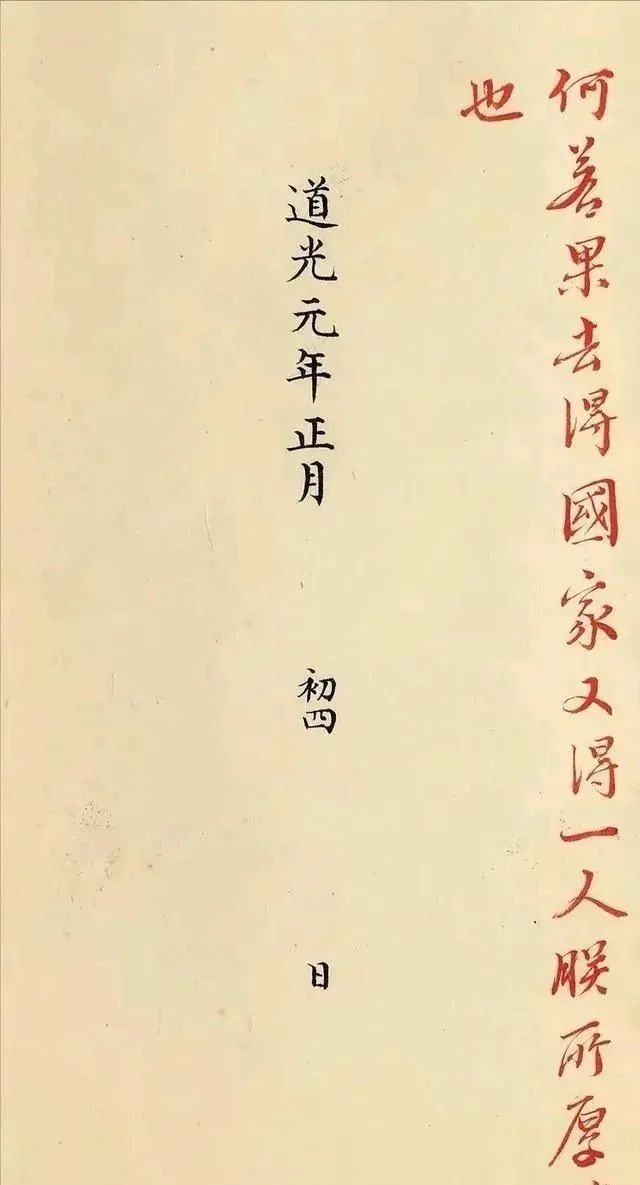 何若果去得國家又得一人朕所厚
也
道光元年正月 初四 日